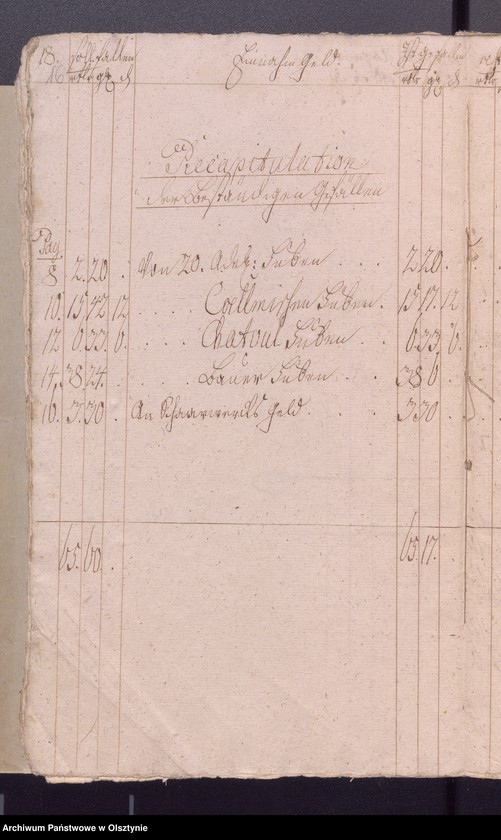 18. soll fallen Einnahm Geld. Ist gefallen
16 rtlr gr ₰ rtlr gr ₰
Recapitulation
der beständigen Gefällen
Pag.
8 2. 20. Von 20. Adel: Huben . . . . 2 20.
10. 15. 42 12 . . . . Cöllmischen Huben. 15 17. 12
12 6. 33. 6. . . . . Chatoul Huben . . 6. 33. 6.
14. 38 24. . . . . Bauer Huben . . . 38 6.
16. 3. 30. An Schaarwercks Geld. . . . . 3 30
65. 60. 65. 17.
Archiwum Państwowe w Olsztynie